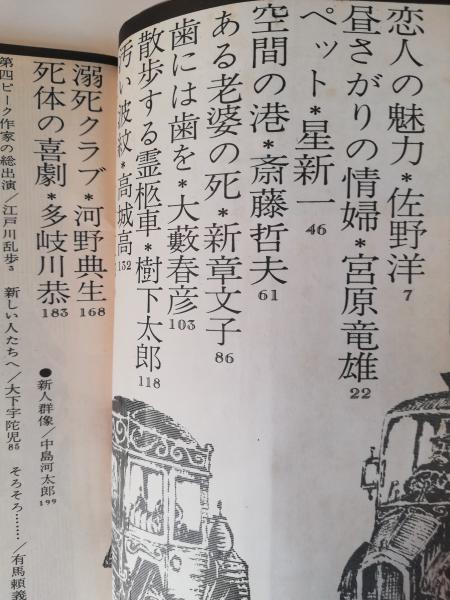 恋人の魅力*佐野洋7
昼さがりの情婦*宮原竜雄22
ペット*星新一46
空間の港*斎藤哲夫61
ある老婆の死*新章文子86
歯には歯を*大藪春彦103
散歩する霊柩車*樹下太郎118
汚い波紋*高城高152
溺死クラブ*河野典生168
死体の喜劇*多岐川恭183
●新人群像/中島河太郎199
第四ピーク作家の総出演/江戸川乱歩3
新しい人たちへ/大下宇陀児85
そろそろ……/有馬頼義